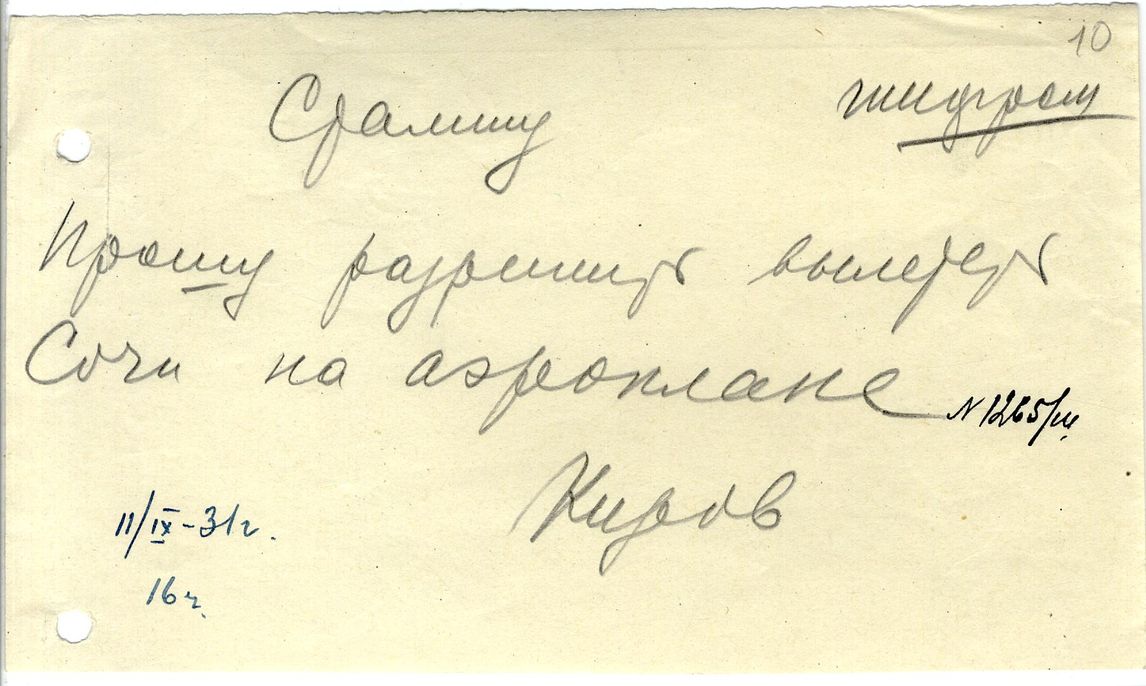 10
Сталину шифром
Прошу разрешить вылететь
Сочи на аэроплане
N 1265/ш
Киров
11/IX-31г.
16 ч.